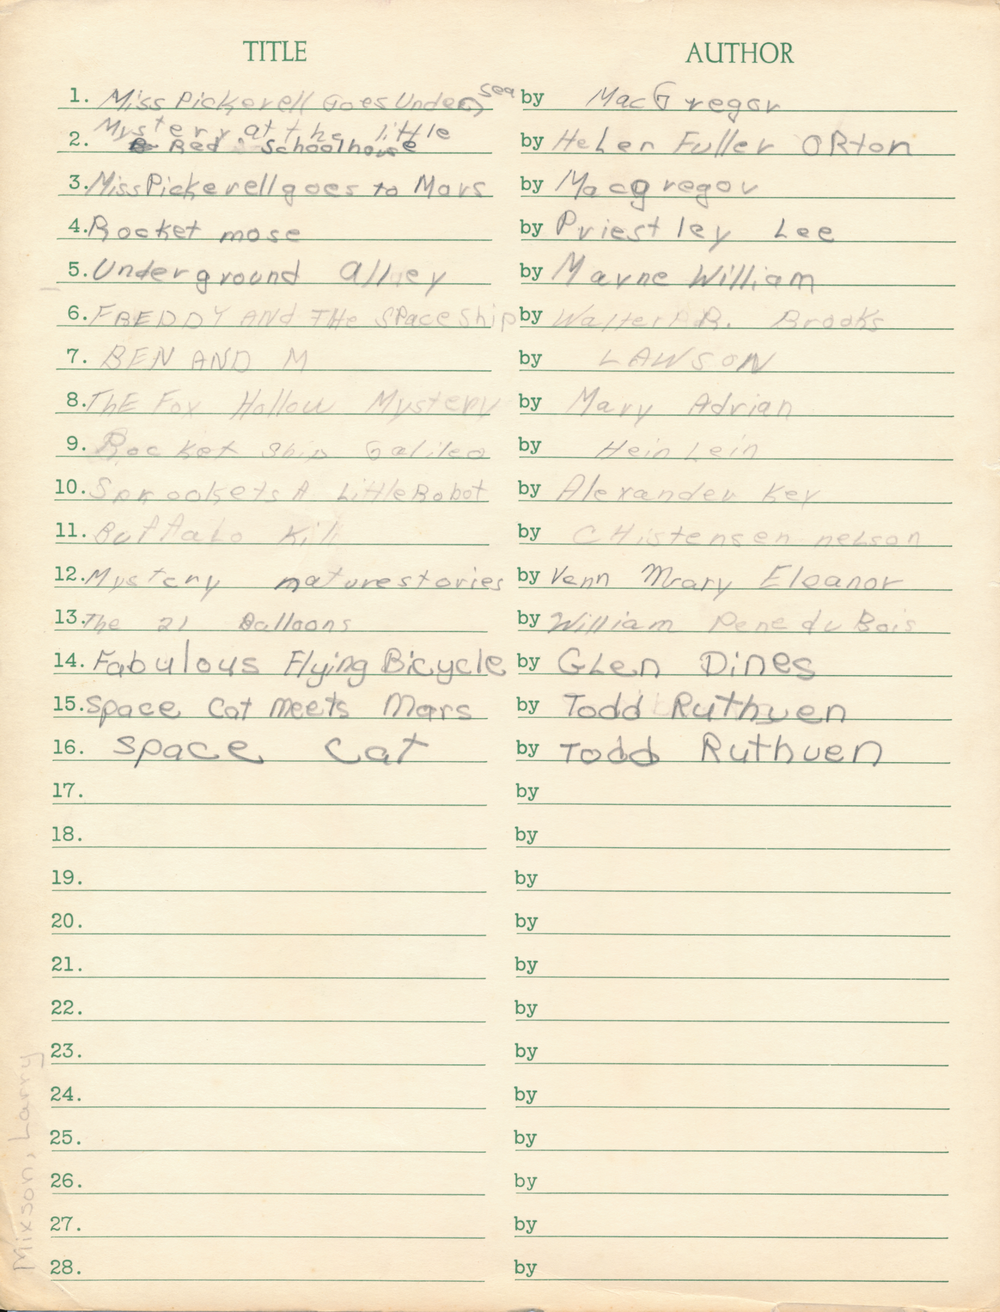 TITLE AUTHOR
1. Miss Pickerell Goes Under sea by MacGregor
2. Mystery at the little
Red Schoolhouse by Helen Fuller ORton
3. Miss Pickerell goes to Mars by Macgregor
4. Rocket mose by Priestley Lee
5. Underground Alley by Mayne William
6. FREDDY ANd THe SPaceship by Walter R. Brooks
7. BEN AND M by LAWSON
8. ThE Fox Hollow Mystery by Mary Adrian
9. Rocket Ship Galileo by HeinLein
10. Sprockets A LittleRobot by Alexander Key
11. Buffalo Kill by CHistensen nelson
12. Mystery naturestories by Venn Mary Eleanor
13. The 21 Balloons by William Pene du Bois
14. Fabulous Flying Bicycle by GLen Dines
15. Space Cat meets Mars by Todd Ruthven
16. Space Cat by Todd Ruthven
17. by
18. by
19. by
20. by
21. by
22. by
23. by
24. by
25. by
26. by
27. by
28. by
Mixson, Larry